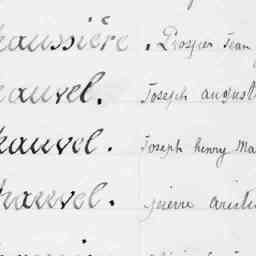 haussière. Prosper Jean
hauvel. Joseph august
hauvel. Joseph henry Ma
hauvel. pierre aristi